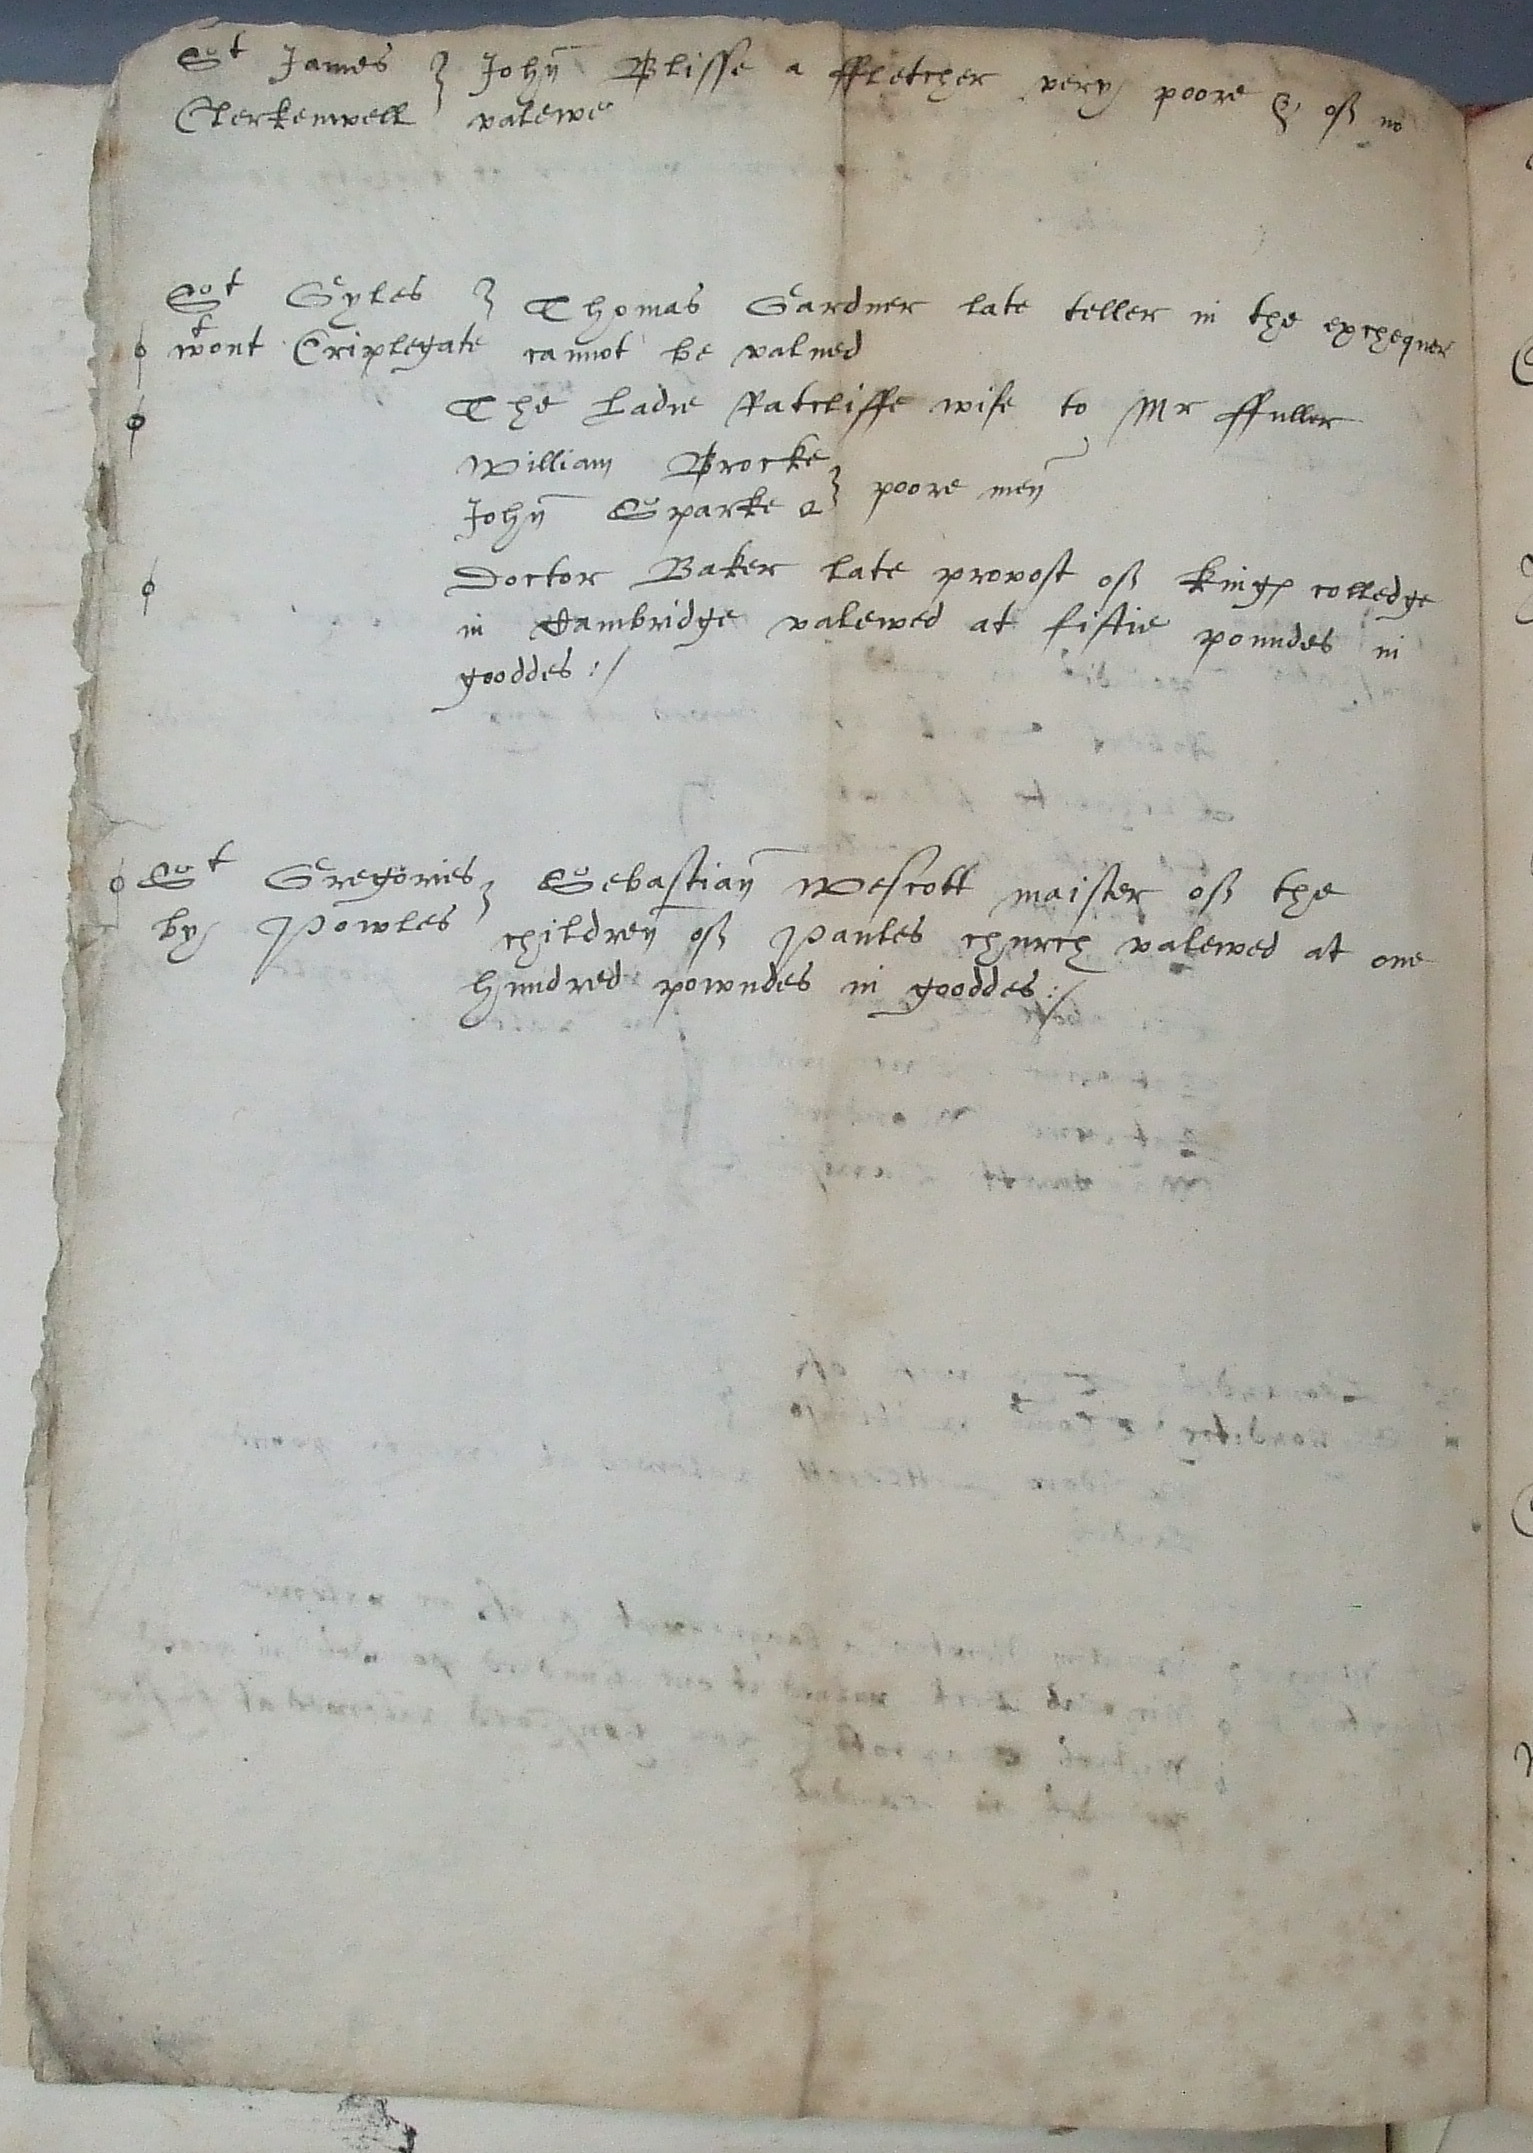 St James } John Blisse a ffletcher very poore & of no
Clerkenwell valewe
St Gyles } Thomas Gardner late teller in the exchequer
wtout Criplegate cannot be valued
The Ladie Ratcliffe wife to Mr ffuller
William Brocke
John Sparke } poore men
Doctor Baker late provost of kinges colledge
in Cambridge valewed at fiftie poundes in
gooddes :/
St Gregories } Sebastian Wescott maister of the
by Powles children of Paules church valewed at one
hundred powndes in gooddes :/